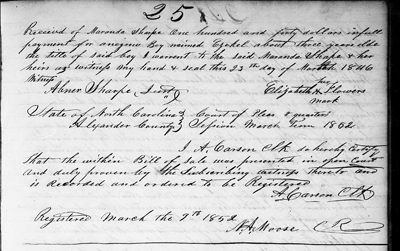 25
Received of Maranda Sharpe one hundred and forty dollars in full
payment for a negro Boy named Ezekel about three years olde
the title of said boy I warrent to the said Maranda Sharpe & her
heirs as witness my hand & seal this 23th day of March 1846
Witness her
Abner Sharpe Jurat Elizabeth X Flowers
mark
State of North Carolina } Court of Pleas & quarters
Alexander County } Session March Term 1852
I A. Carson Clk do hereby Certify
That the within Bill of Sale was presented in open Court
and duly proven by the Subscribing witness thereto and
is Recorded and ordered to be Registered
A. Carson Clk
Registered March the 9th 1852
Moose CR